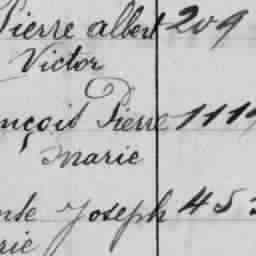 Pierre albert 209
Victor
nçois Pierre 111
Marie
Joseph 45
rie